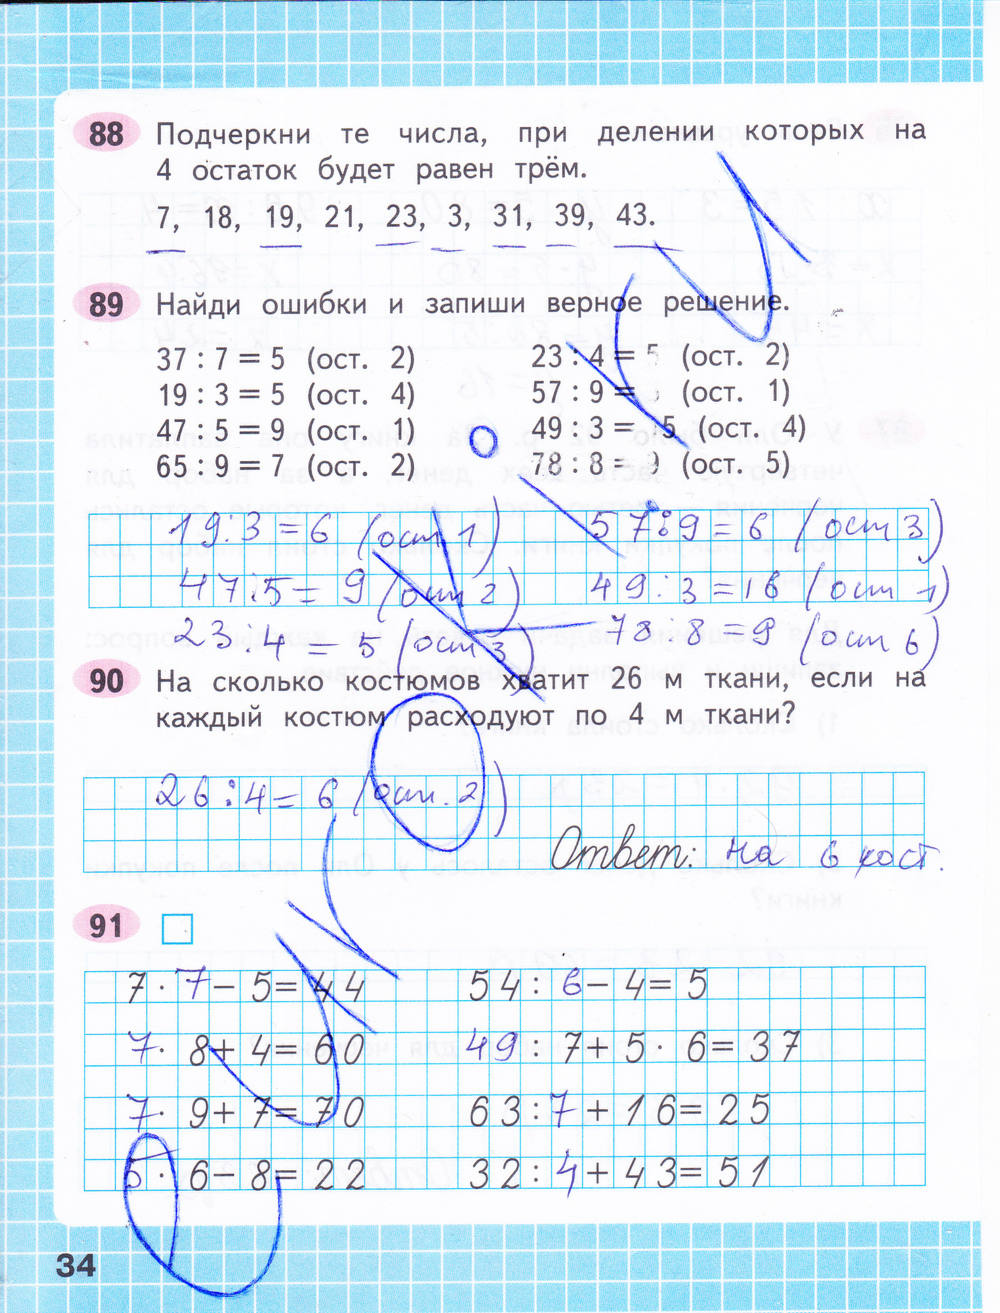 88 Подчеркни те числа, при делении которых на
4 остаток будет равен трём.
7, 18, 19, 21, 23, 3, 31, 39, 43.
89 Найди ошибки и запиши верное решение.
37 : 7 = 5 (ост. 2) 23 : 4 = 5 (ост. 2)
19 : 3 = 5 (ост. 4) 57 : 9 = (ост. 1)
47 : 5 = 9 (ост. 1) 49 : 3 = 15 (ост. 4)
65 : 9 = 7 (ост. 2) 78 : 8 = 9 (ост. 5)
19:3=6 (ост 1) 57:9=6 (ост 3)
47:5=9 (ост 2) 49:3=16 (ост 1)
23:4=5 (ост 3) 78:8=9 (ост 6)
90 На сколько костюмов хватит 26 м ткани, если на
каждый костюм расходуют по 4 м ткани?
26:4=6 (ост. 2)
Ответ: на 6 кост.
91
7 · 7 - 5 = 44 54 : 6 - 4 = 5
7 · 8 + 4 = 60 49 : 7 + 5 · 6 = 37
7 · 9 + 7 = 70 63 : 7 + 16 = 25
5 · 6 - 8 = 22 32 : 4 + 43 = 51
34